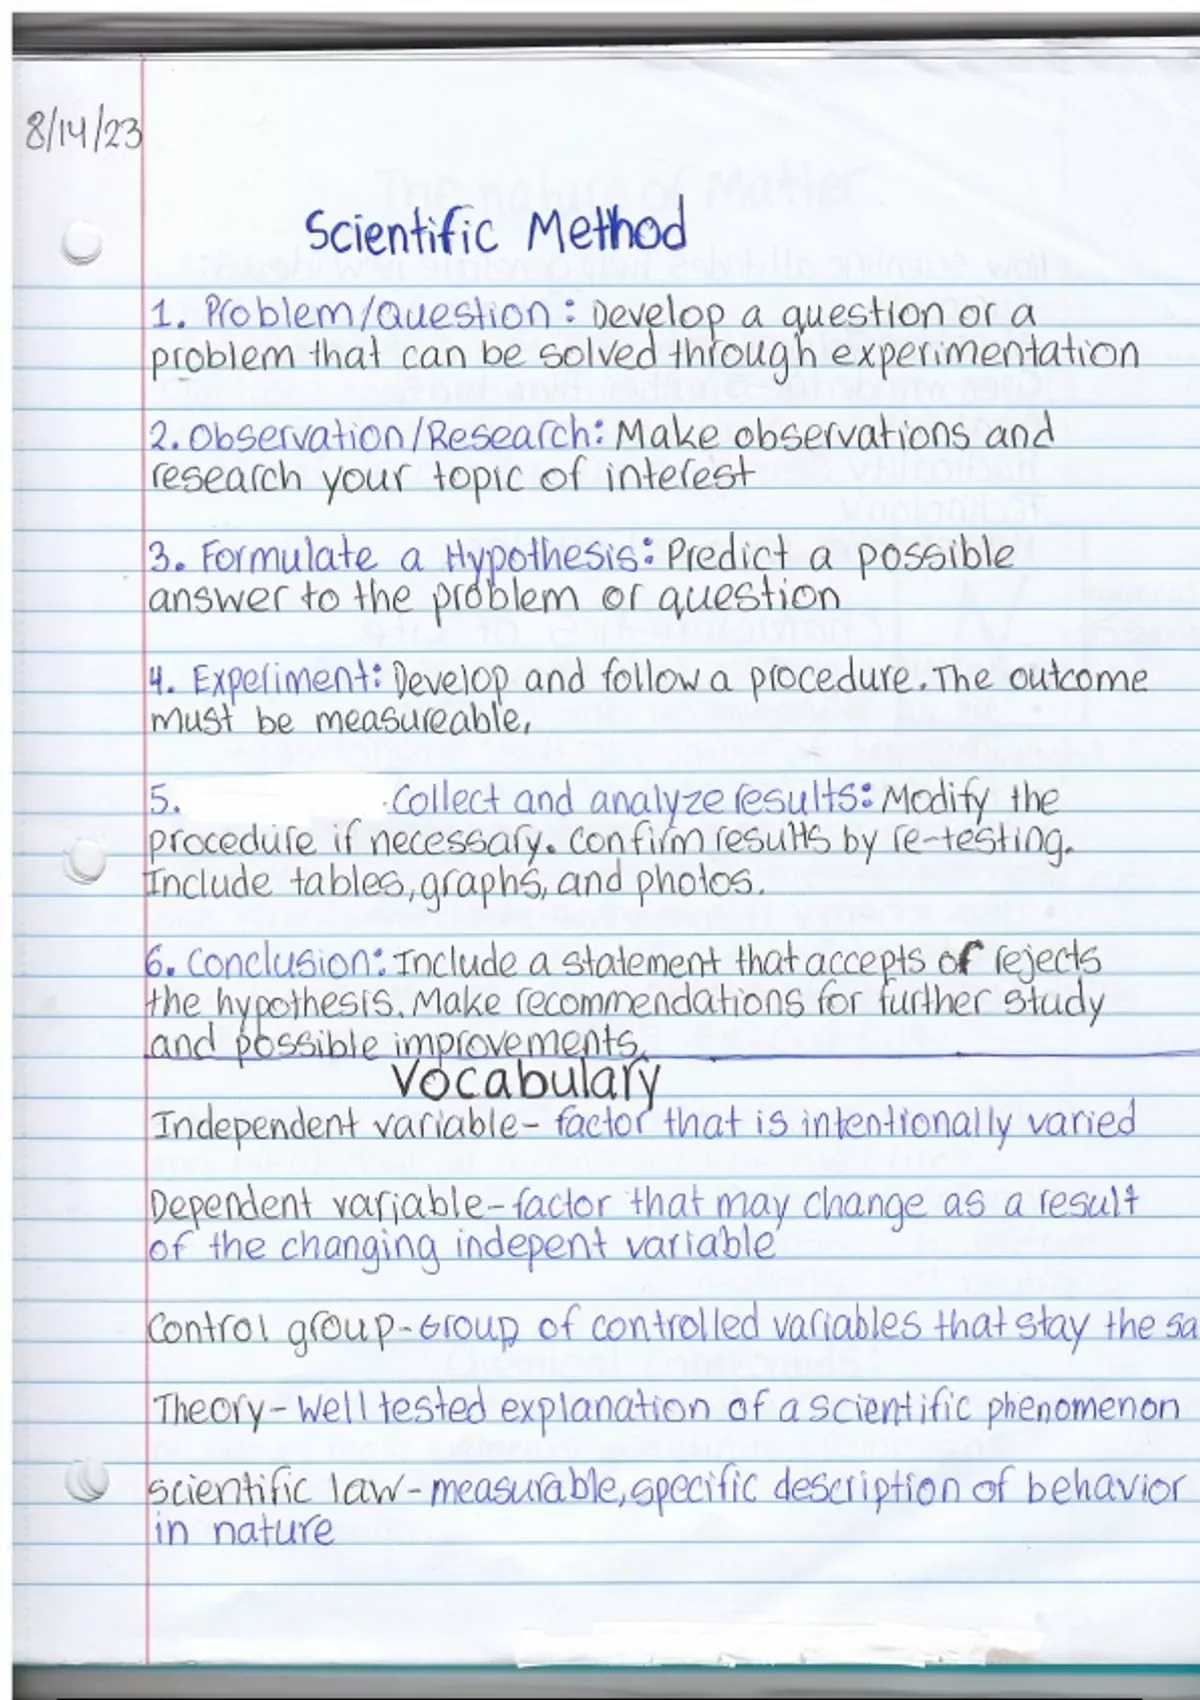 8/14/23
Scientific Method
1. Problem/Question: Develop a question or a
problem that can be solved through experimentation
2. Observation/Research: Make observations and
research your topic of interest
3. Formulate a Hypothesis: Predict a possible
answer to the problem or question
4. Experiment: Develop and follow a procedure. The outcome
must be measureable,
5. Collect and analyze results: Modify the
procedure if necessary. Confirm results by re-testing.
Include tables, graphs, and photos.
6. Conclusion: Include a statement that accepts or rejects
the hypothesis. Make recommendations for further study
and possible improvements.
Vocabulary
Independent variable- factor that is intentionally varied
Dependent variable- factor that may change as a result
of the changing indepent variable
Control group- Group of controlled variables that stay the sa
Theory- Well tested explanation of a scientific phenomenon
scientific law- measurable, specific description of behavior
in nature